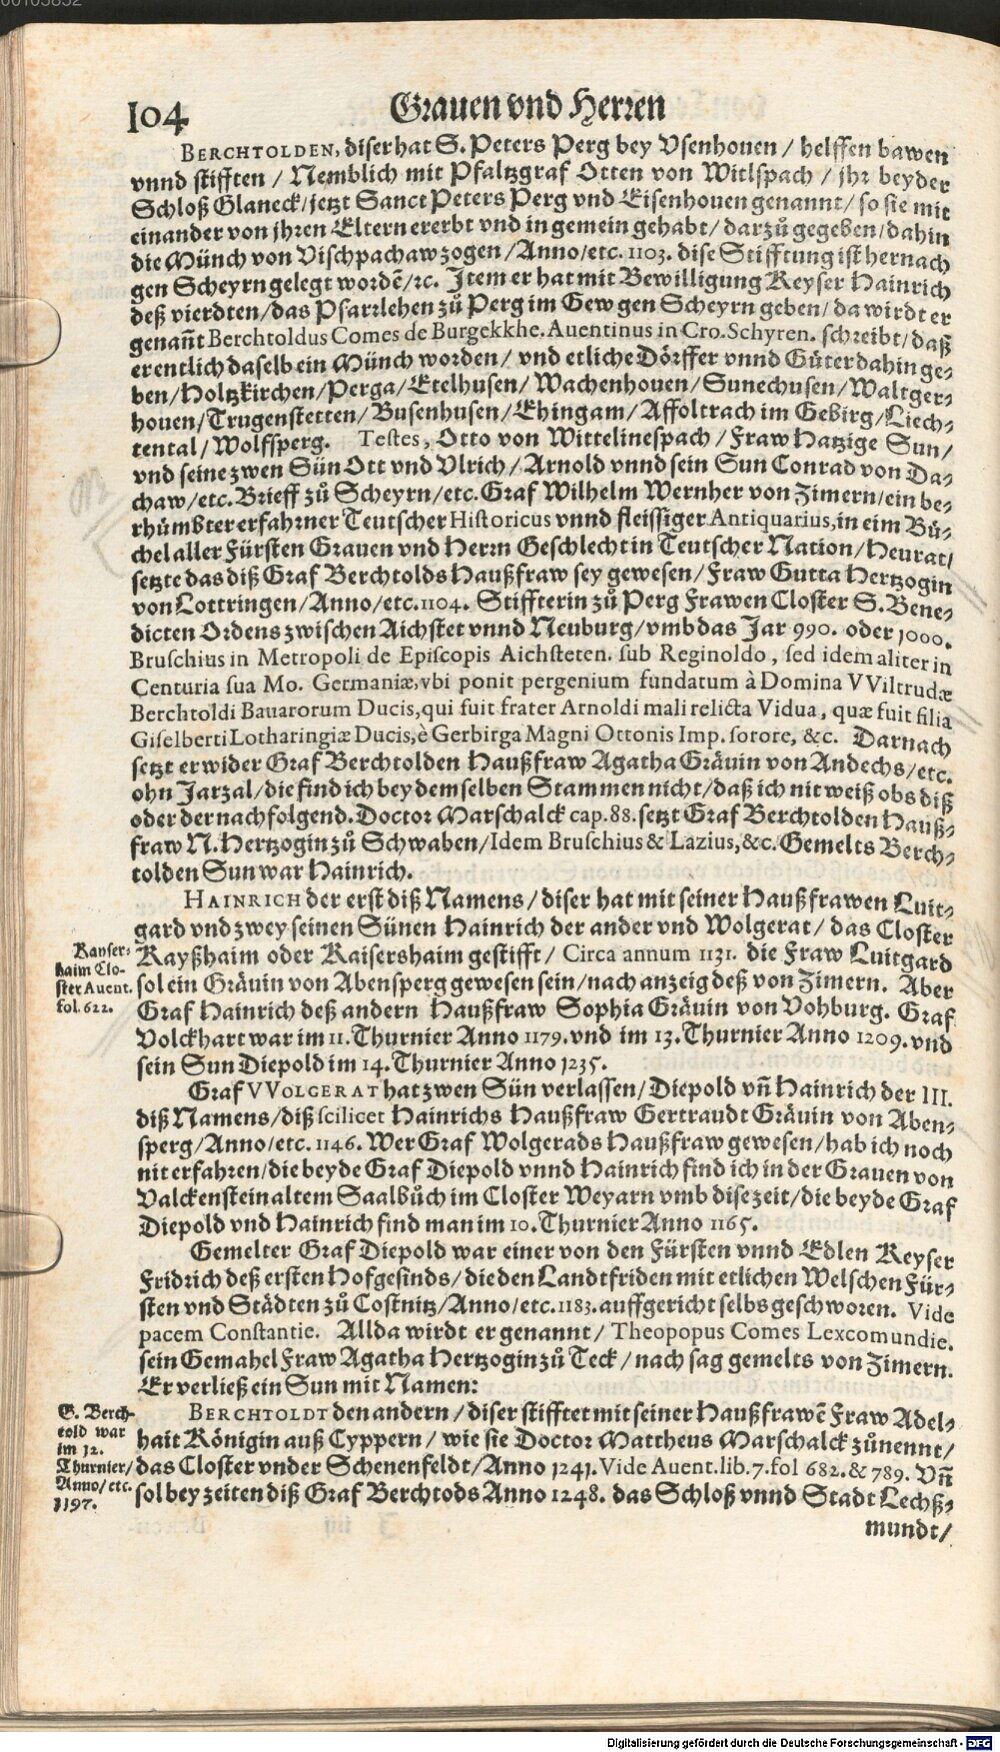 00103832
104 Grauen vnd Herren
BERCHTOLDEN, diser hat S. Peters Perg bey Vsenhouen / helffen bawen
vnnd stifften / Nemblich mit Pfaltzgraf Otten von Witlspach / jhr beyder
Schloß Glaneck/jetzt Sanct Peters Perg vnd Eisenhouen genannt/ so sie mit
einander von jhren Eltern ererbt vnd in gemein gehabt/ darzů gegeben/dahin
die Münch von Vischpachaw zogen/Anno/etc. 1103. dise Stifftung ist hernach
gen Scheyrn gelegt wordẽ/ꝛc. Item er hat mit Bewilligung Keyser Hainrich
deß vierdten/das Pfarrlehen zů Perg im Gew gen Scheyrn geben/ da wirdt er
genañt Berchtoldus Comes de Burgekkhe. Auentinus in Cro. Schyren. schreibt/daß
er entlich daselb ein Münch worden/ vnd etliche Dörffer vnnd Güter dahin ge-
ben/Holtzkirchen/Perga/Etelhusen/Wachenhouen/Sunechusen/Waltger-
houen/Trugenstetten/Busenhusen/Ehingam/Affoltrach im Gebirg/Liech-
tental/Wolfsperg. Testes, Otto von Wittelinespach/Fraw Hatzige Sun/
vnd seine zwen Sün Ott vnd Vlrich/Arnold vnnd sein Sun Conrad von Da-
chaw/etc. Brieff zů Scheyrn/etc. Graf Wilhelm Wernher von Zimern/ein be-
rhümbter erfahrner Teutscher Historicus vnnd fleissiger Antiquarius, in eim Bü-
chel aller Fürsten Grauen vnd Herrn Geschlecht in Teutscher Nation/Heurat/
setzte das diß Graf Berchtolds Haußfraw sey gewesen/Fraw Gutta Hertzogin
von Lottringen/Anno/etc. 1104. Stiffterin zů Perg Frawen Closter S. Bene-
dicten Ordens zwischen Aichstet vnnd Neuburg/vmb das Jar 990. oder 1000.
Bruschius in Metropoli de Episcopis Aichsteten. sub Reginoldo, sed idem aliter in
Centuria sua Mo. Germaniæ, vbi ponit pergenium fundatum à Domina VViltrudæ
Berchtoldi Bauarorum Ducis, qui fuit frater Arnoldi mali relicta Vidua, quæ fuit filia
Giselberti Lotharingiæ Ducis, è Gerbirga Magni Ottonis Imp. sorore, &c. Darnach
setzt er wider Graf Berchtolden Haußfraw Agatha Gräuin von Andechs/etc.
ohn Jarzal/die find ich bey demselben Stammen nicht/daß ich nit weiß obs diß
oder der nachfolgend. Doctor Marschalck cap. 88. setzt Graf Berchtolden Hauß-
fraw N. Hertzogin zů Schwaben/Idem Bruschius & Lazius, &c. Gemelts Berch-
tolden Sun war Hainrich.
HAINRICH der erst diß Namens/diser hat mit seiner Haußfrawen Luit-
gard vnd zwey seinen Sünen Hainrich der ander vnd Wolgerat/ das Closter
Kayßhaim oder Kaisershaim gestifft/ Circa annum 1131. die Fraw Luitgard
sol ein Gräuin von Abensperg gewesen sein/nach anzeig deß von Zimern. Aber
Graf Hainrich deß andern Haußfraw Sophia Gräuin von Vohburg. Graf
Volckhart war im 11. Thurnier Anno 1179. vnd im 13. Thurnier Anno 1209. vnd
sein Sun Diepold im 14. Thurnier Anno 1235.
Kayser-
haim Clo-
ster Auent.
fol. 622.
Graf VVOLGERAT hat zwen Sün verlassen/Diepold vñ Hainrich der III.
diß Namens/diß scilicet Hainrichs Haußfraw Gertraudt Gräuin von Aben-
sperg/Anno/etc. 1146. Wer Graf Wolgerads Haußfraw gewesen/hab ich noch
nit erfahren/die beyde Graf Diepold vnnd Hainrich find ich in der Grauen von
Valckenstein altem Saalbůch im Closter Weyarn vmb dise zeit/die beyde Graf
Diepold vnd Hainrich find man im 10. Thurnier Anno 1165.
Gemelter Graf Diepold war einer von den Fürsten vnnd Edlen Keyser
Fridrich deß ersten Hofgesinds/die den Landtfriden mit etlichen Welschen Für-
sten vnd Städten zů Costnitz/Anno/etc. 1183. auffgericht selbs geschworen. Vide
pacem Constantie. Allda wirdt er genannt/Theopopus Comes Lexcomundie.
sein Gemahel Fraw Agatha Hertzogin zů Teck/nach sag gemelts von Zimern.
Er verließ ein Sun mit Namen:
BERCHTOLDT den andern/diser stifftet mit seiner Haußfrawẽ Fraw Adel-
hait Königin auß Cyppern/ wie sie Doctor Mattheus Marschalck zůnennt/
das Closter vnder Schenenfeldt/Anno 1241. Vide Auent. lib. 7. fol 682. & 789. Vñ
sol bey zeiten diß Graf Berchtods Anno 1248. das Schloß vnnd Stadt Lechß-
mundt/
G. Berch-
told war
im 12.
Thurnier/
Anno/etc.
1197.
Digitalisierung gefördert durch die Deutsche Forschungsgemeinschaft - DFG